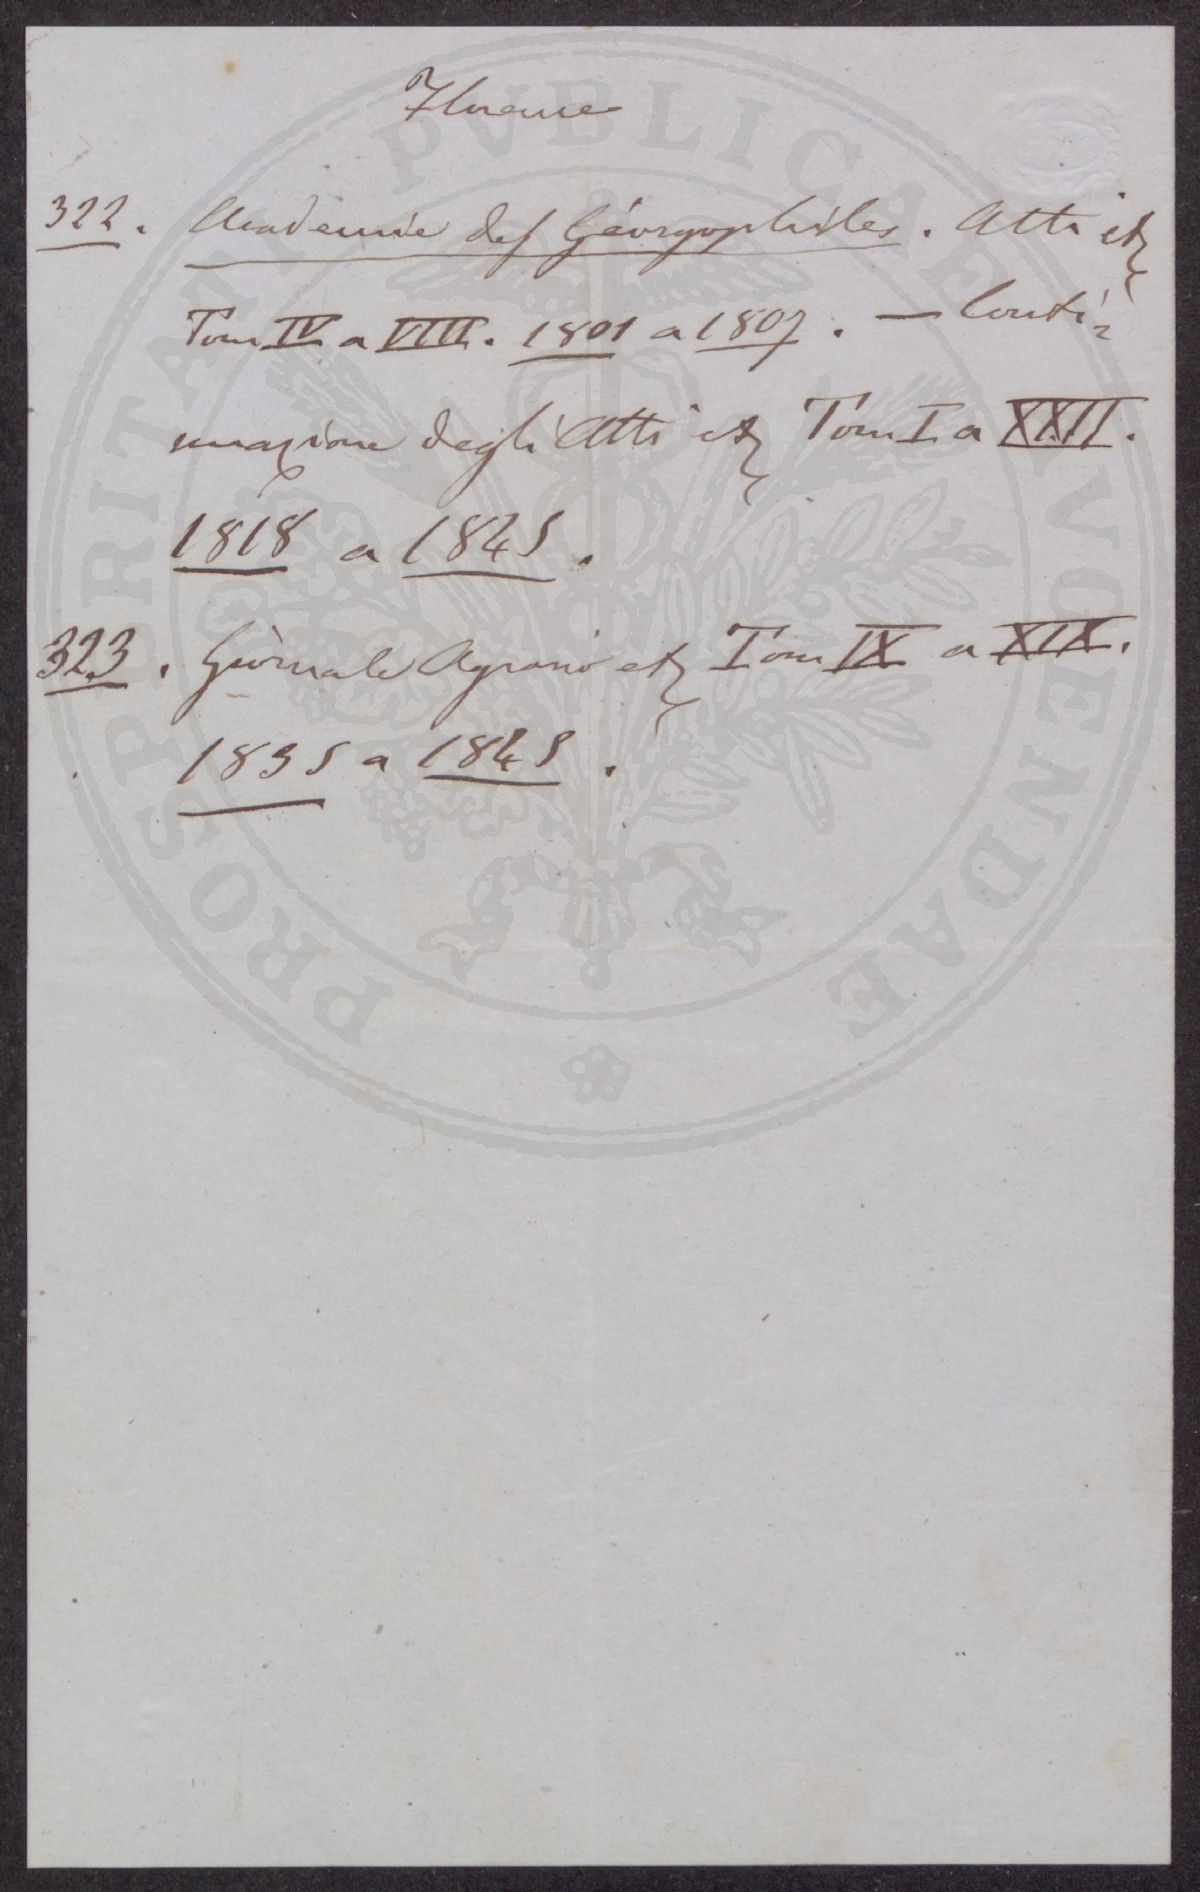 Florence
322. Academie des Géorgophiles. Atti etz
Tom IV a VIII. 1801 a 1807. — Conti=
nuazione degli Atti etz Tom I a XXII.
1818 a 1845.
323. Giornale Agrario etz Tom IX a XIX.
1835 a 1845.
PROSPERITATI PVBLICAE AVGENDAE